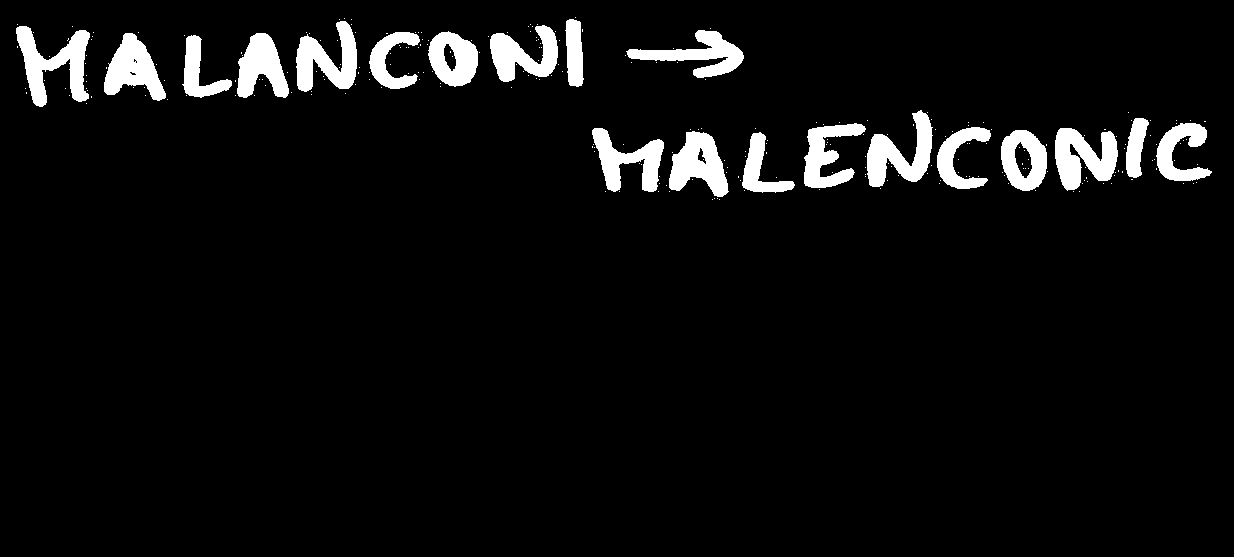 MALANCONI →
MALENCONIC